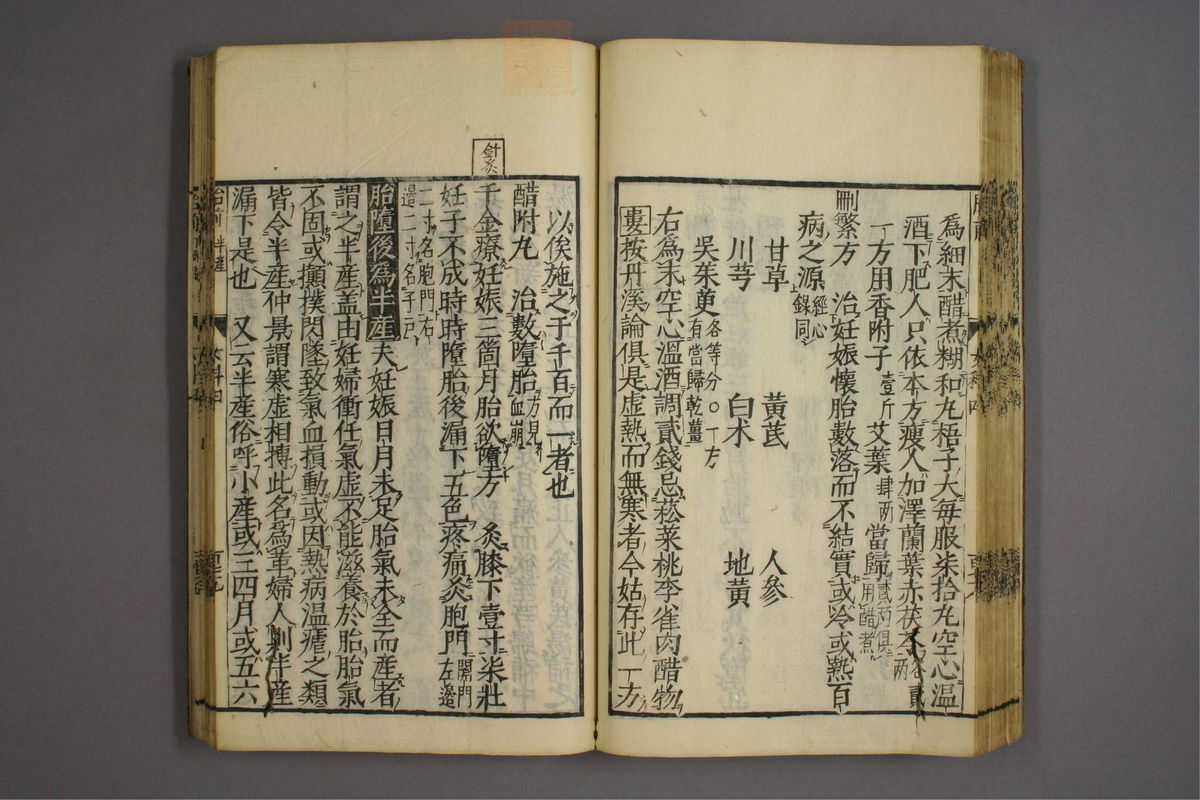 爲細末醋煮糊和丸梧子大每服柒拾丸空心溫
酒下肥人只依本方瘦人加澤蘭葉赤茯苓各貳兩
一方用香附子壹斤艾葉肆兩當歸貳兩俱用醋煮
刪繁方 治妊娠懷胎數落而不結實或冷或熱百
病之源經心錄同
甘草 黃芪 人參
川芎 白术 地黃
吳茱萸各等分○一方有當歸乾薑
右爲末空心溫酒調貳錢忌菘菜桃李雀肉醋物
婁按丹溪論俱是虛熱而無寒者今姑存此一方
以俟施之于千百而一者也
醋附丸 治數墮胎方見血崩
針灸
千金療妊娠三箇月胎欲墮方 灸膝下壹寸柒壯
妊子不成時時墮胎後漏下五色疼痛灸胞門關門左邊
二寸名胞門右邊二寸名子戶
胎墮後為半產夫妊娠日月未足胎氣未全而產者
謂之半產盖由妊婦衝任氣虛不能滋養於胎胎氣
不固或攧撲閃墜致氣血損動或因熱病温瘧之類
皆令半產仲景謂寒虛相搏此名爲革婦人則半產
漏下是也 又云半產俗呼小產或三四月或五六
胎前 半產
女科四